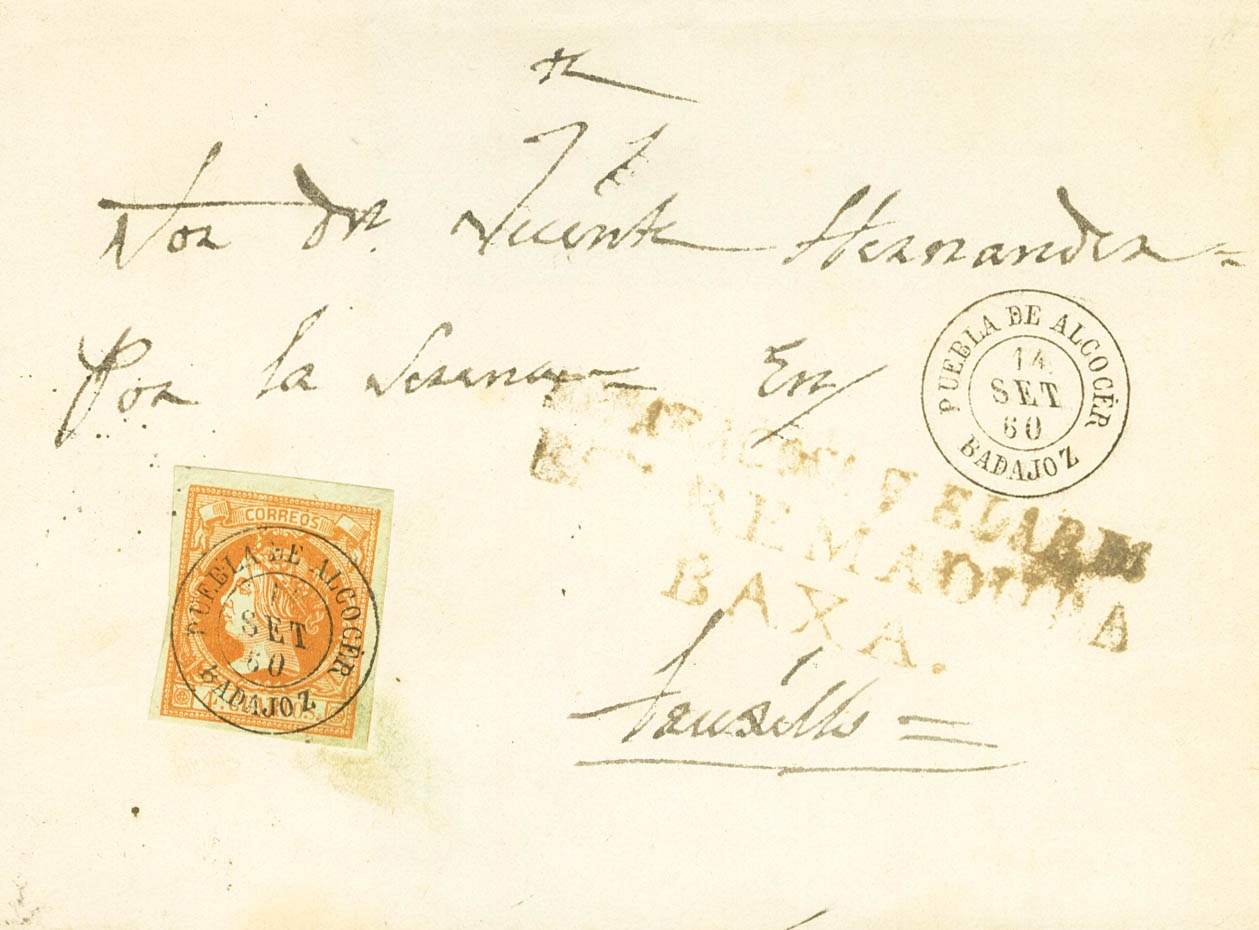 Sor dn. Vicente Hernandez =
Por la Serena = En
PUEBLA DE ALCOCÉR
14
SET
60
BADAJOZ
BAXA.
CORREOS
PUEBLA DE ALCOCÉR
SET
60
BADAJOZ
Truxillo =